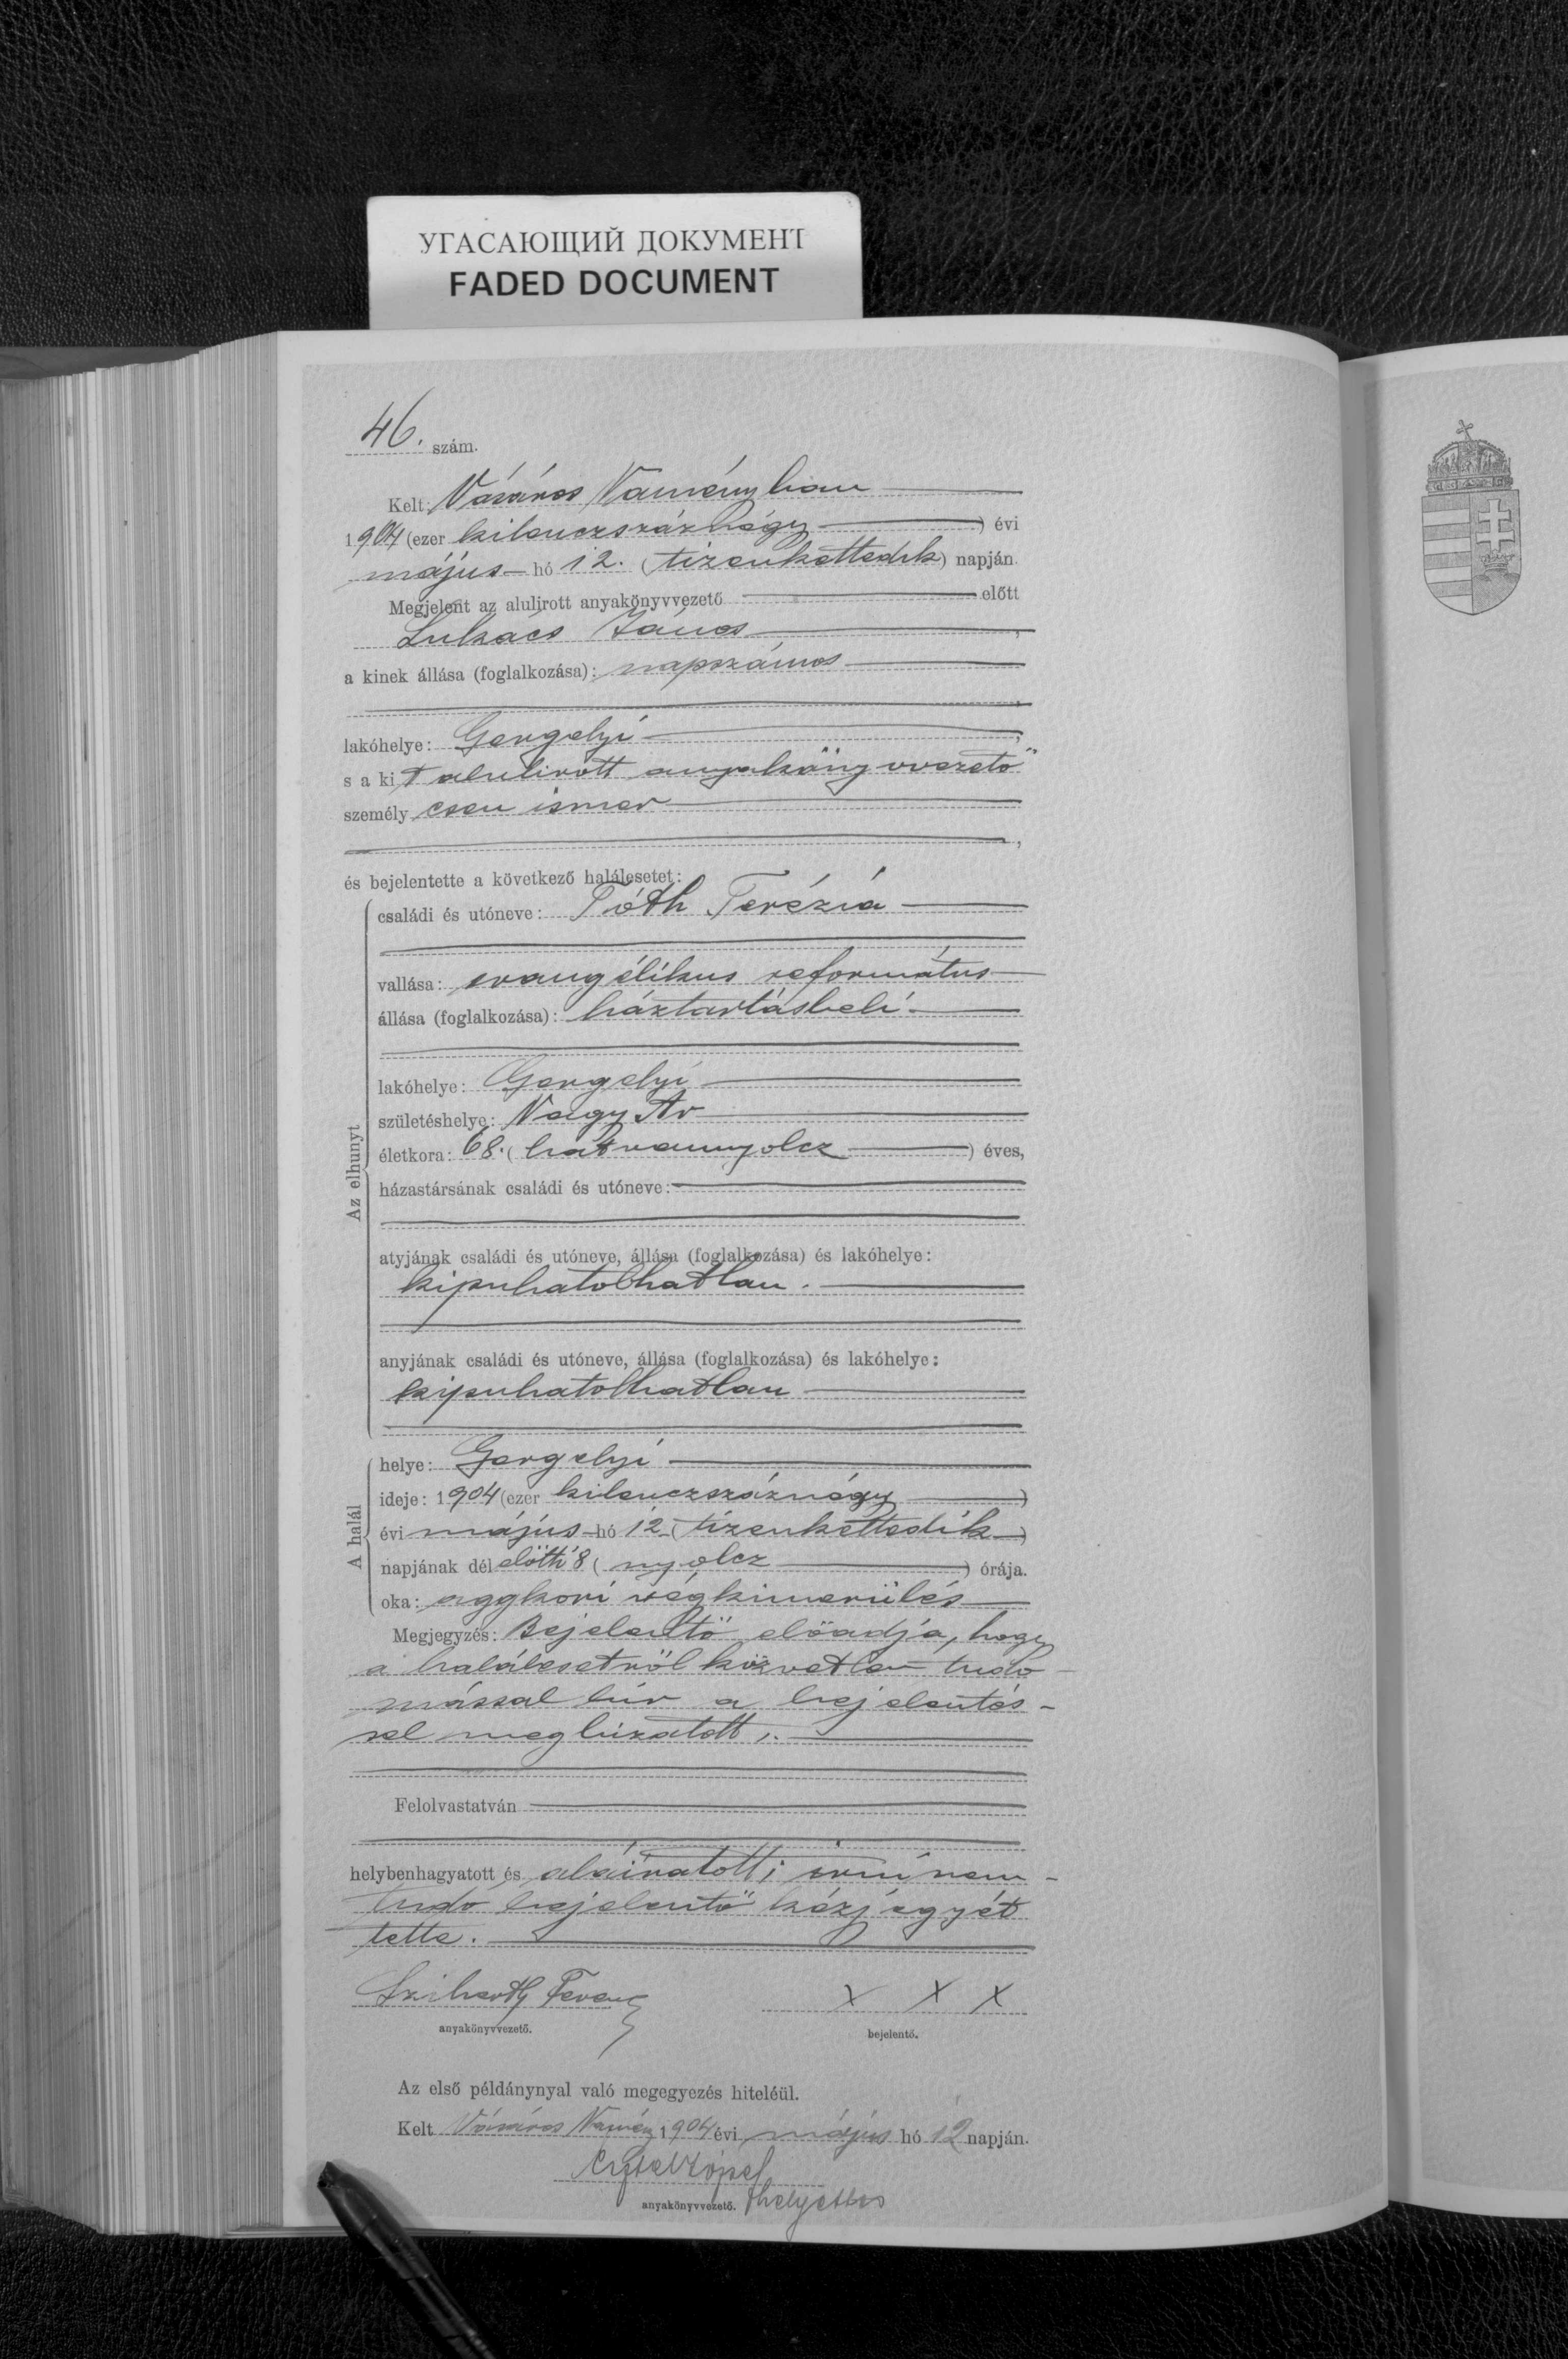 УГАСАЮЩИЙ ДОКУМЕНТ
FADED DOCUMENT
46. szám.
Kelt: Vásáros Naményban
1904 (ezer kilenczszáznégy) évi
május hó 12. (tizenkettedik) napján.
Megjelent az alulirott anyakönyvvezető előtt
Lukács János,
a kinek állása (foglalkozása): napszámos
,
lakóhelye: Gergelyi,
s a kit alulirott anyakönyvvezető
személyesen ismer
,
és bejelentette a következő halálesetet:
Az elhunyt
családi és utóneve: Tóth Terézia
vallása: evangélikus református
állása (foglalkozása): háztartásbeli
lakóhelye: Gergelyi
születéshelye: Nagy Ar
életkora: 68. (hatvannyolcz) éves,
házastársának családi és utóneve:
atyjának családi és utóneve, állása (foglalkozása) és lakóhelye:
kipuhatolhatlan.
anyjának családi és utóneve, állása (foglalkozása) és lakóhelye:
kipuhatolhatlan
A halál
helye: Gergelyi
ideje: 1904 (ezer kilenczszáznégy)
évi május hó 12 (tizenkettedik)
napjának délelőtti 8 (nyolcz) órája.
oka: aggkori végkimerülés
Megjegyzés: Bejelentő előadja, hogy
a halálesetről közvetlen tudo-
mással bir a bejelentés-
sel megbizatott.
Felolvastatván
helybenhagyatott és aláiratott; irni nem-
tudó bejelentő kézjegyét
tette.
Ferencz X X X
anyakönyvvezető. bejelentő.
Az első példánynyal való megegyezés hiteléül.
Kelt Vásáros Namény 1904 évi május hó 12 napján.
anyakönyvvezető. helyettes